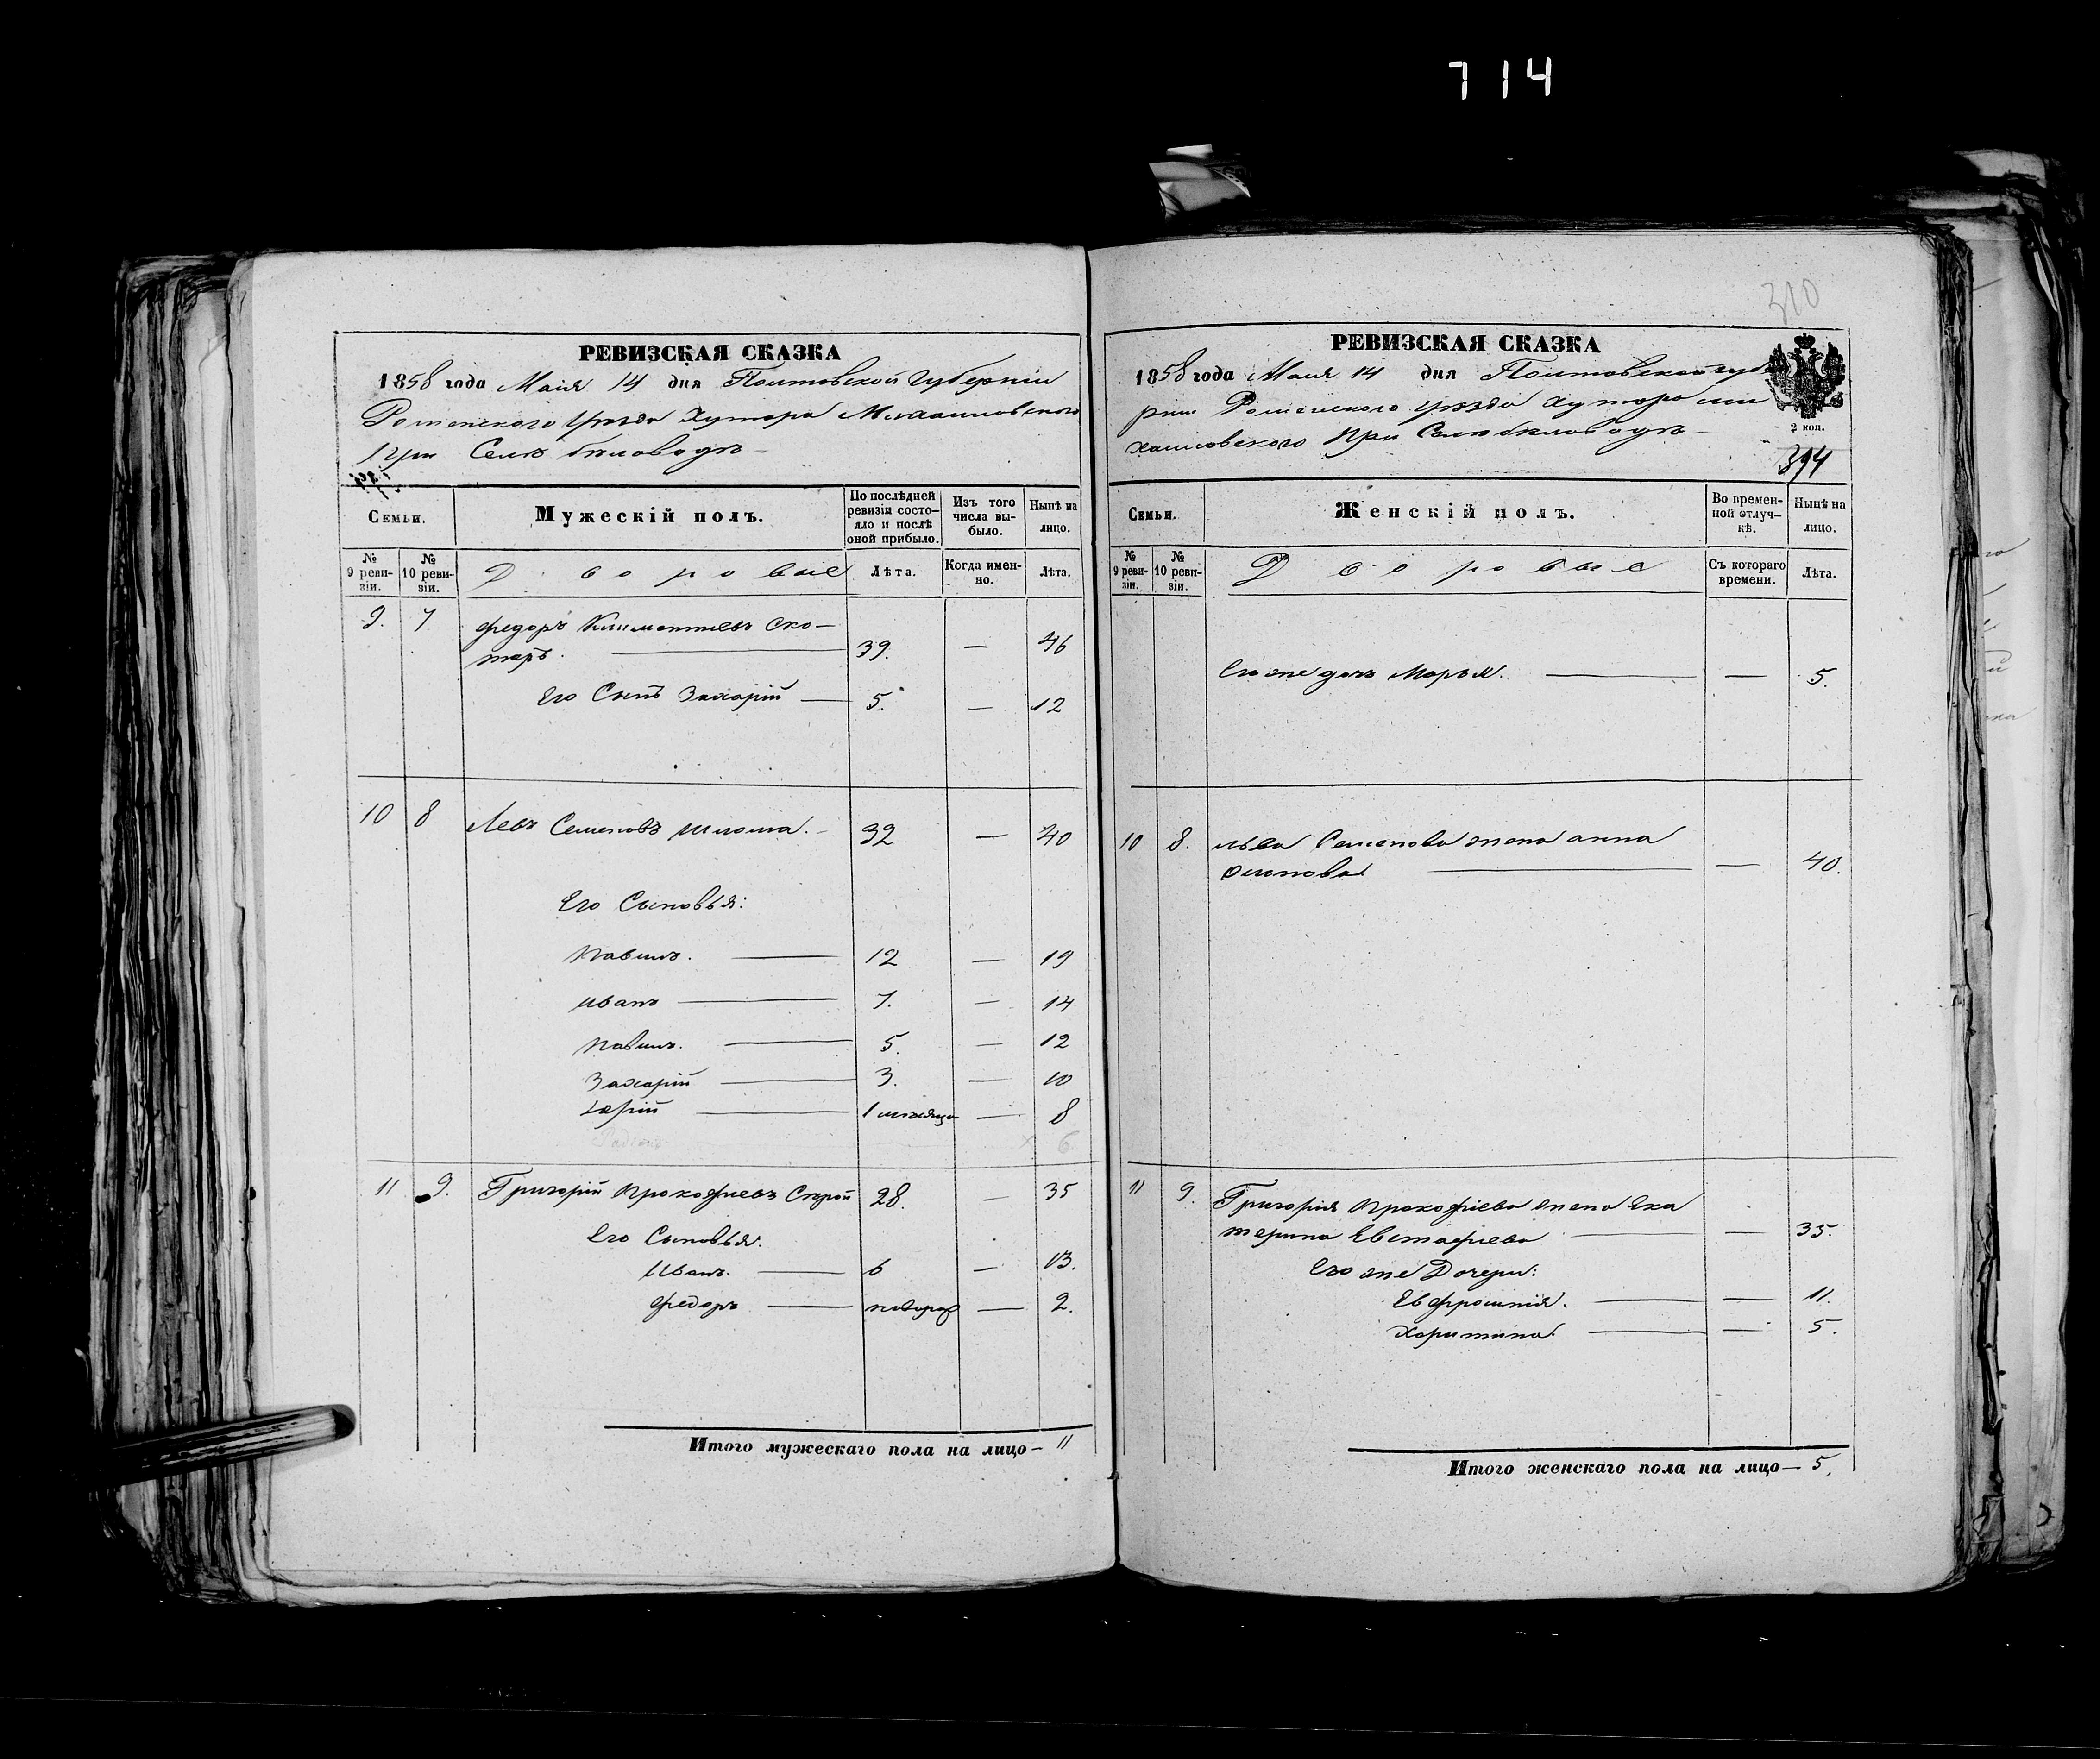 714
РЕВИЗСКАЯ СКАЗКА
1858 года Маія 14 дня Полтавской Губерніи
Роменского уѣзда Хутора Михайловского
При Селѣ бѣловодъ
Семьи.
Мужескій полъ.
По послѣдней ревизіи состояло и послѣ оной прибыло.
Изъ того числа выбыло.
Нынѣ на лицо.
№ 9 ревизіи.
№ 10 ревизіи.
Дворовые
Лѣта.
Когда именно.
Лѣта.
9. 7 Федоръ Климентіевъ Ско-
таръ. 39. — 46
Его Сынъ Захарій 5. — 12
10 8 Левъ Семеновъ 32 — 40
Его Сыновья:
Павилъ. 12 — 19
Иванъ 7. — 14
Павилъ. 5. — 12
Захарій 3. — 10
1 мѣсяца — 8
6
11 9. Григорій Прокофіевъ 28. — 35
Его Сыновья.
Иванъ. 6 — 13.
Федоръ — 2.
Итого мужескаго пола на лицо — 11
310
РЕВИЗСКАЯ СКАЗКА
1858 года Маія 14 дня Полтавской губе
рніи Роменского уѣзда Хутора Ми
хайловского При Селѣ бѣловодъ
2 коп.
394
Семьи.
Женскій полъ.
Во временной отлучкѣ.
Нынѣ на лицо.
№ 9 ревизіи.
№ 10 ревизіи.
Дворовые
Съ котораго времени.
Лѣта.
Его же дочь Марья. — 5.
10 8. Льва Семенова жена анна
Осипова — 40.
11 9. Григорія Прокофіева жена Ека
терина Евстафіева — 35.
Его же Дочери:
Евфросинія. — 11.
Харитина. — 5.
Итого женскаго пола на лицо — 5.